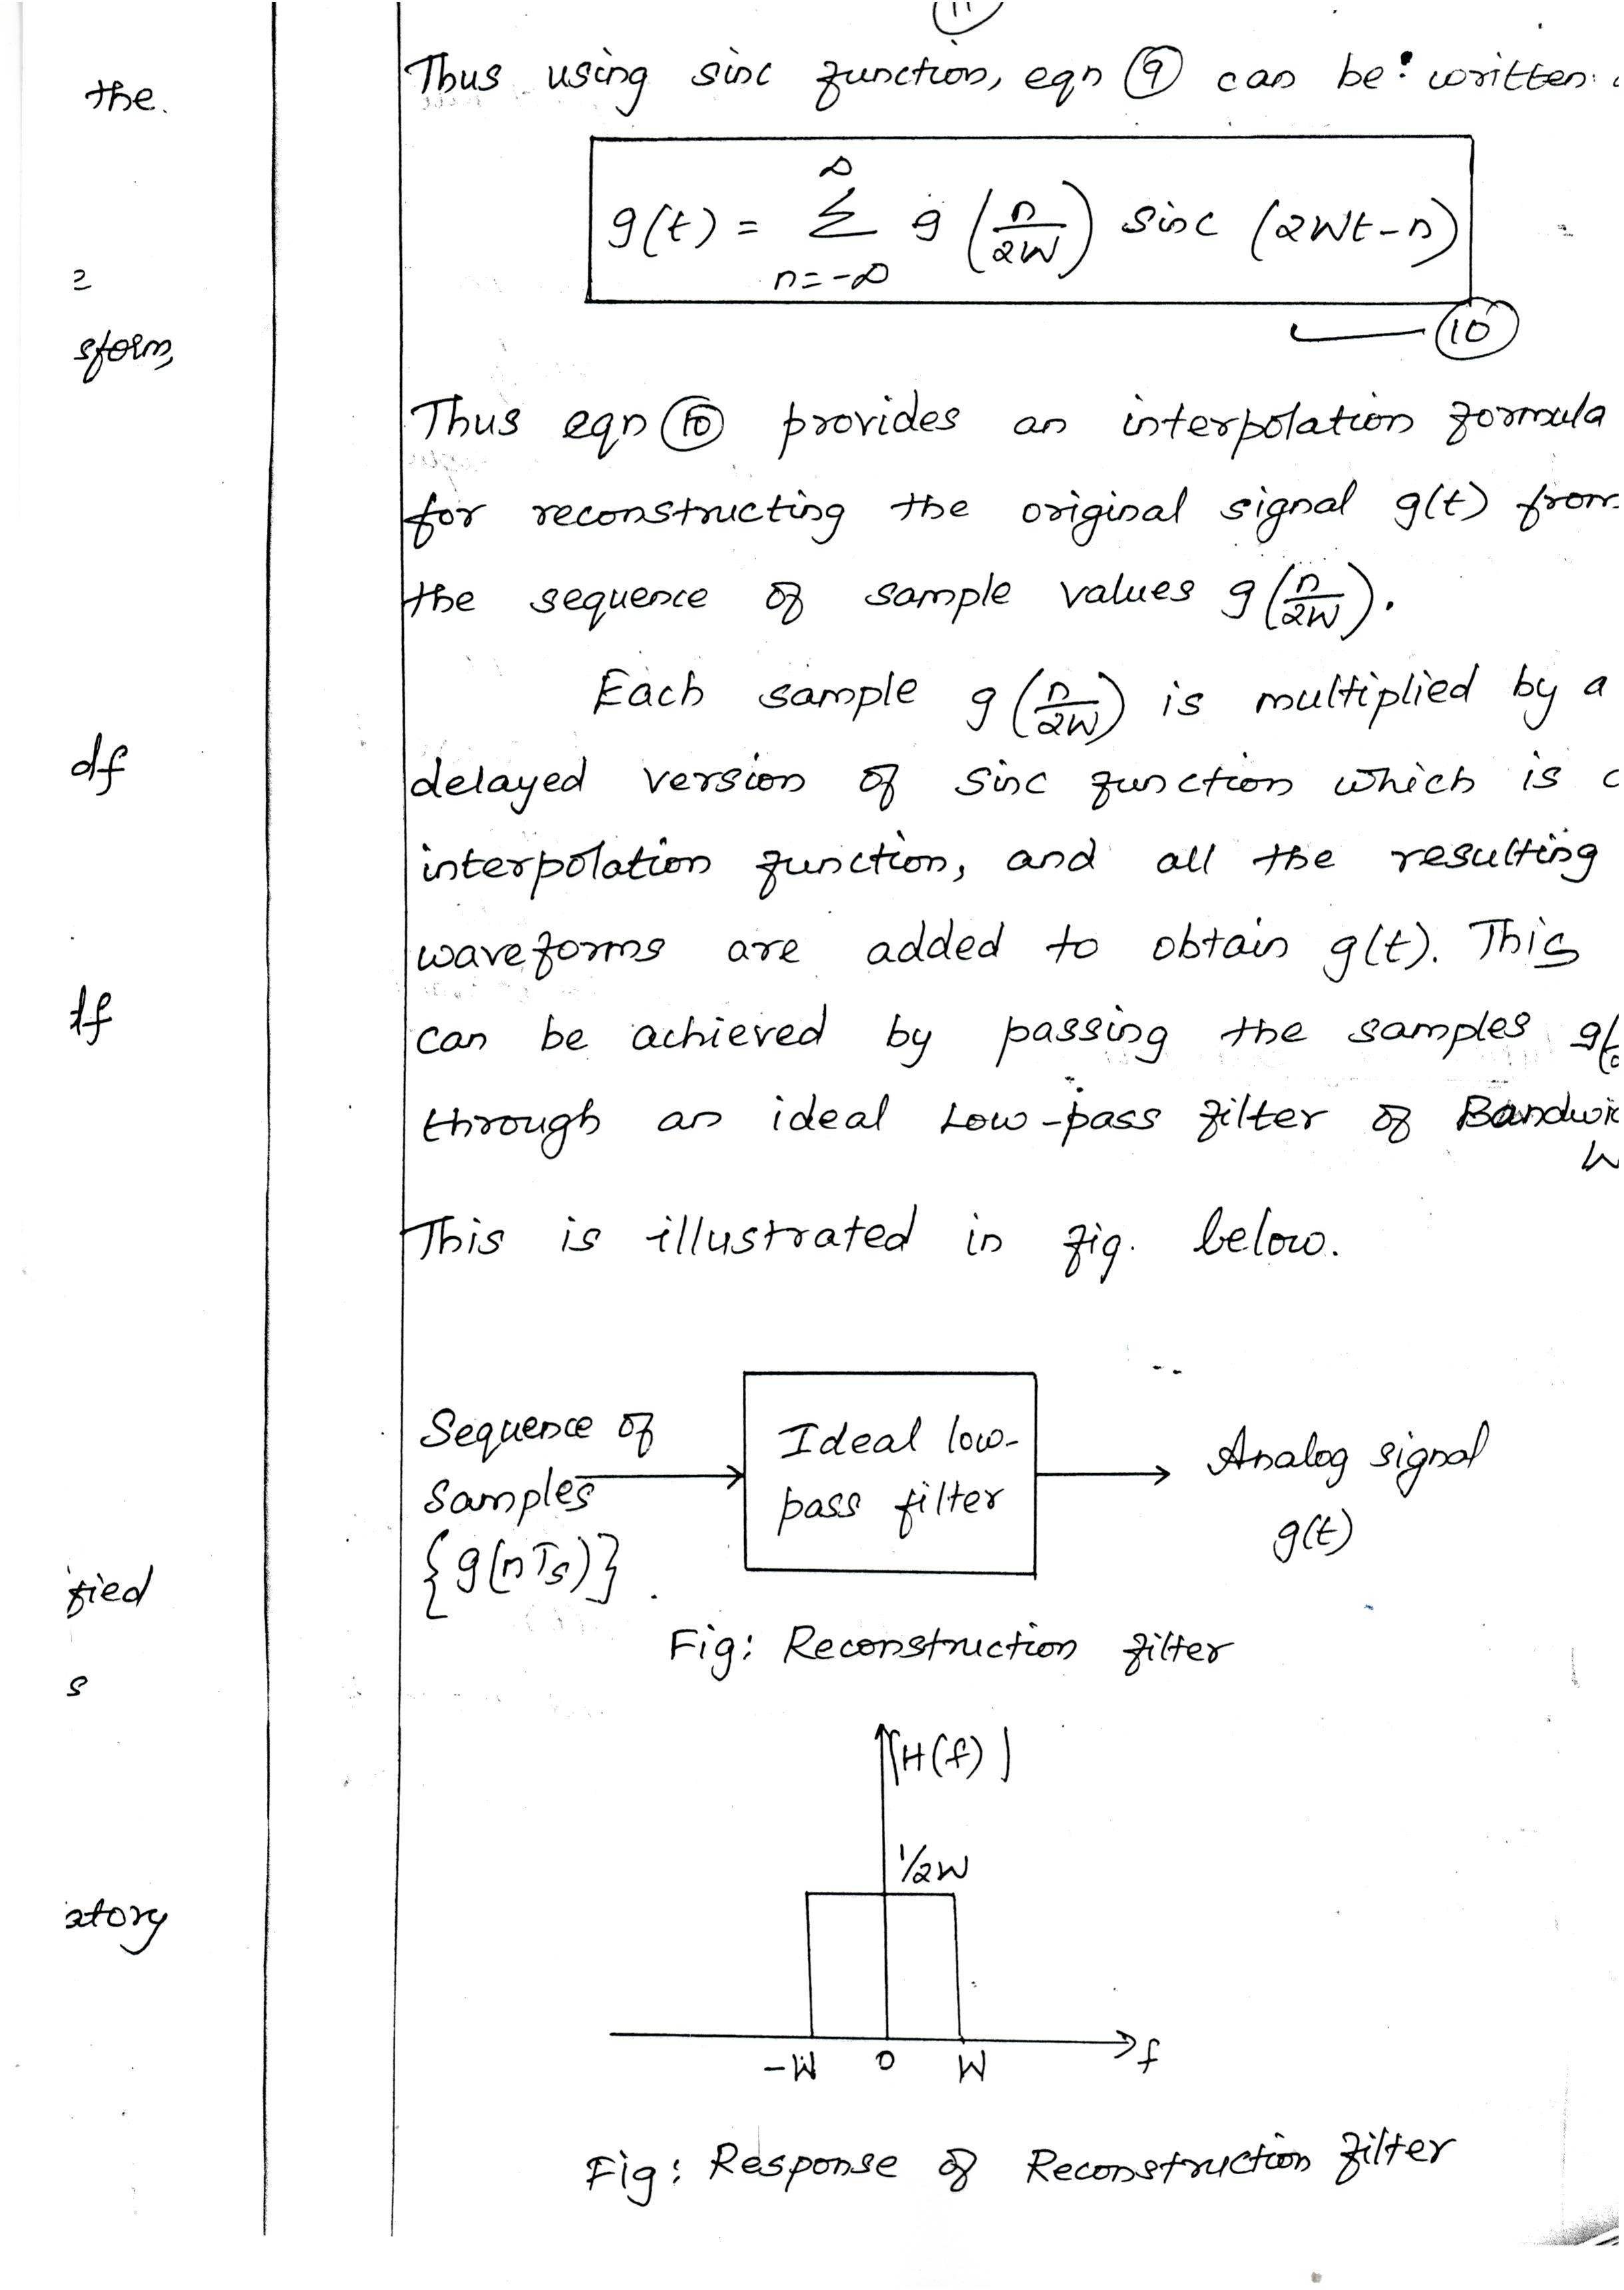 11
Thus using sinc function, eqn (9) can be written
g(t) = ∞ Σ n=-∞ g (n/2W) sinc (2Wt-n)
(10)
Thus eqn (10) provides an interpolation formula
for reconstructing the original signal g(t) from
the sequence of sample values g(n/2W).
Each sample g(n/2W) is multiplied by a
delayed version of sinc function which is
interpolation function, and all the resulting
waveforms are added to obtain g(t). This
can be achieved by passing the samples
through an ideal Low-pass filter of
W
This is illustrated in fig. below.
Sequence of
samples
{g(nTs)}
Ideal low-
pass filter
Analog signal
g(t)
Fig: Reconstruction filter
|H(f)|
1/2W
-W 0 W
f
Fig: Response of Reconstruction filter
the.
2
sform,
df
df
fied
s
atory